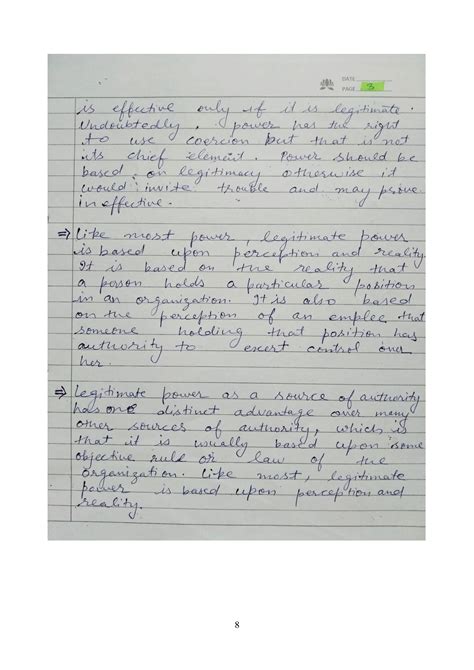 DATE
PAGE 3
is effective only if it is legitimate.
Undoubtedly, power has the right
to use coercion but that is not
its chief element. Power should be
based on legitimacy otherwise it
would invite trouble and may prove
in effective.
⇒ Like most power, legitimate power
is based upon perception and reality.
It is based on the reality that
a person holds a particular position
in an organization. It is also based
on the perception of an emplee that
someone holding that position has
authority to exert control over
her.
⇒ Legitimate power as a source of authority
has one distinct advantage over many
other sources of authority, which is
that it is usually based upon some
objective rule or law of the
organization. Like most, legitimate
power is based upon perception and
reality.
8